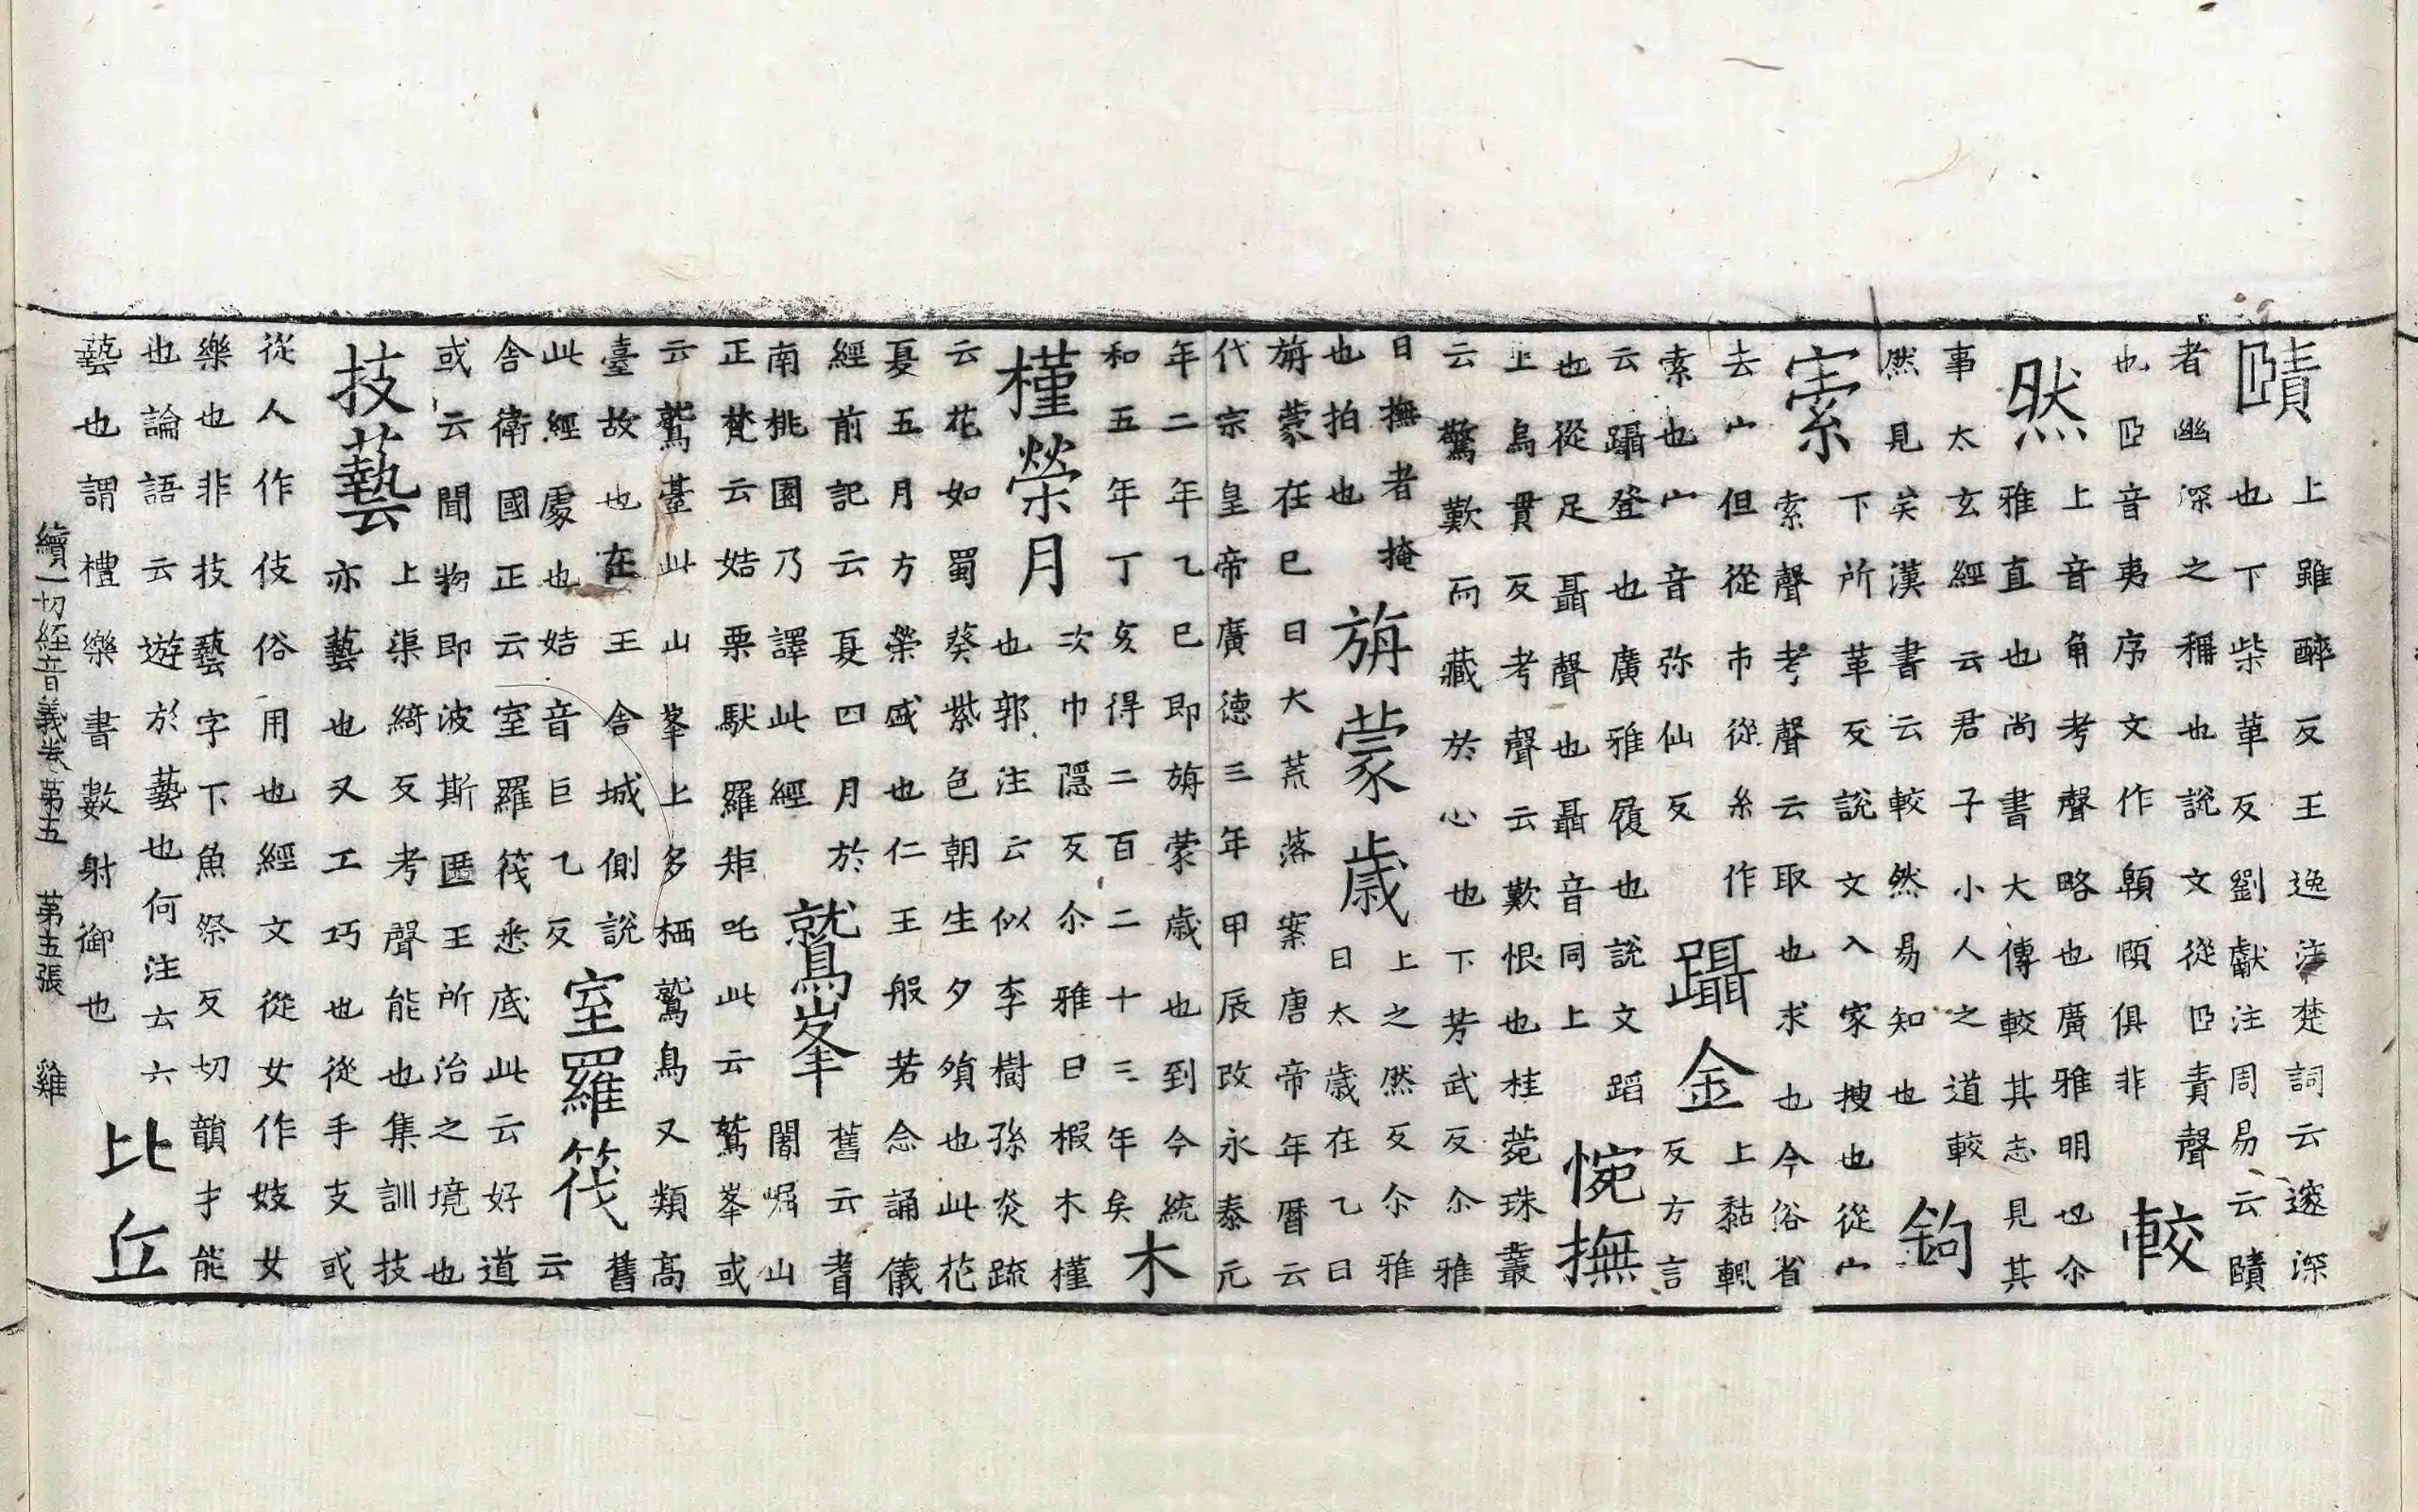 賾上雖醉反王逸注楚詞云邃深也下柴革反劉獻注周易云賾
者幽深之稱也說文從𦣞責聲也𦣞音夷序文作顊頤俱非較
然上音角考聲略也廣雅明也尒雅直也尚書大傳較其志見其
事太玄經云君子小人之道較然見矣漢書云較然易知也鉤
𡩡下所革反說文入家搜也從宀索聲考聲云取也求也今俗省
去宀但從巿從糸作索也宀音弥仙反躡金上黏輒反方言
云躡登也廣雅履也說文蹈也從足聶聲也聶音同上惋撫
上烏貫反考聲云歎恨也桂菀珠叢云驚歎而藏於心也下芳武反尒雅
曰撫者掩也拍也旃蒙歲上之然反尒雅曰太歲在乙曰
旃蒙在巳曰大荒落案唐帝年曆云代宗皇帝廣德三年甲辰改永泰元
年二年乙巳即旃蒙歲也到今統和五年丁亥得二百二十三年矣木
槿榮月次巾隱反尒雅曰椵木槿也郭注云似李樹孫炎疏
云花如蜀葵紫色朝生夕殞也此花夏五月方榮盛也仁王般若念誦儀
經前記云夏四月於南桃園乃譯此經鷲峯舊云耆闍崛山
正梵云姞栗馱羅矩吒此云鷲峯或云鷲臺此山峯上多栖鷲鳥又類高
臺故也在王舍城側說此經處也姞音巨乙反室羅筏舊云
舍衛國正云室羅筏悉底此云好道或云聞物即波斯匿王所治之境也
技藝上渠綺反考聲能也集訓技亦藝也又工巧也從手支或
從人作伎俗用也經文從女作妓女樂也非技藝字下魚祭反切韻才能
也論語云遊於藝也何注云六藝也謂禮樂書數射御也比丘
續一切經音義卷第五 第五張 雞